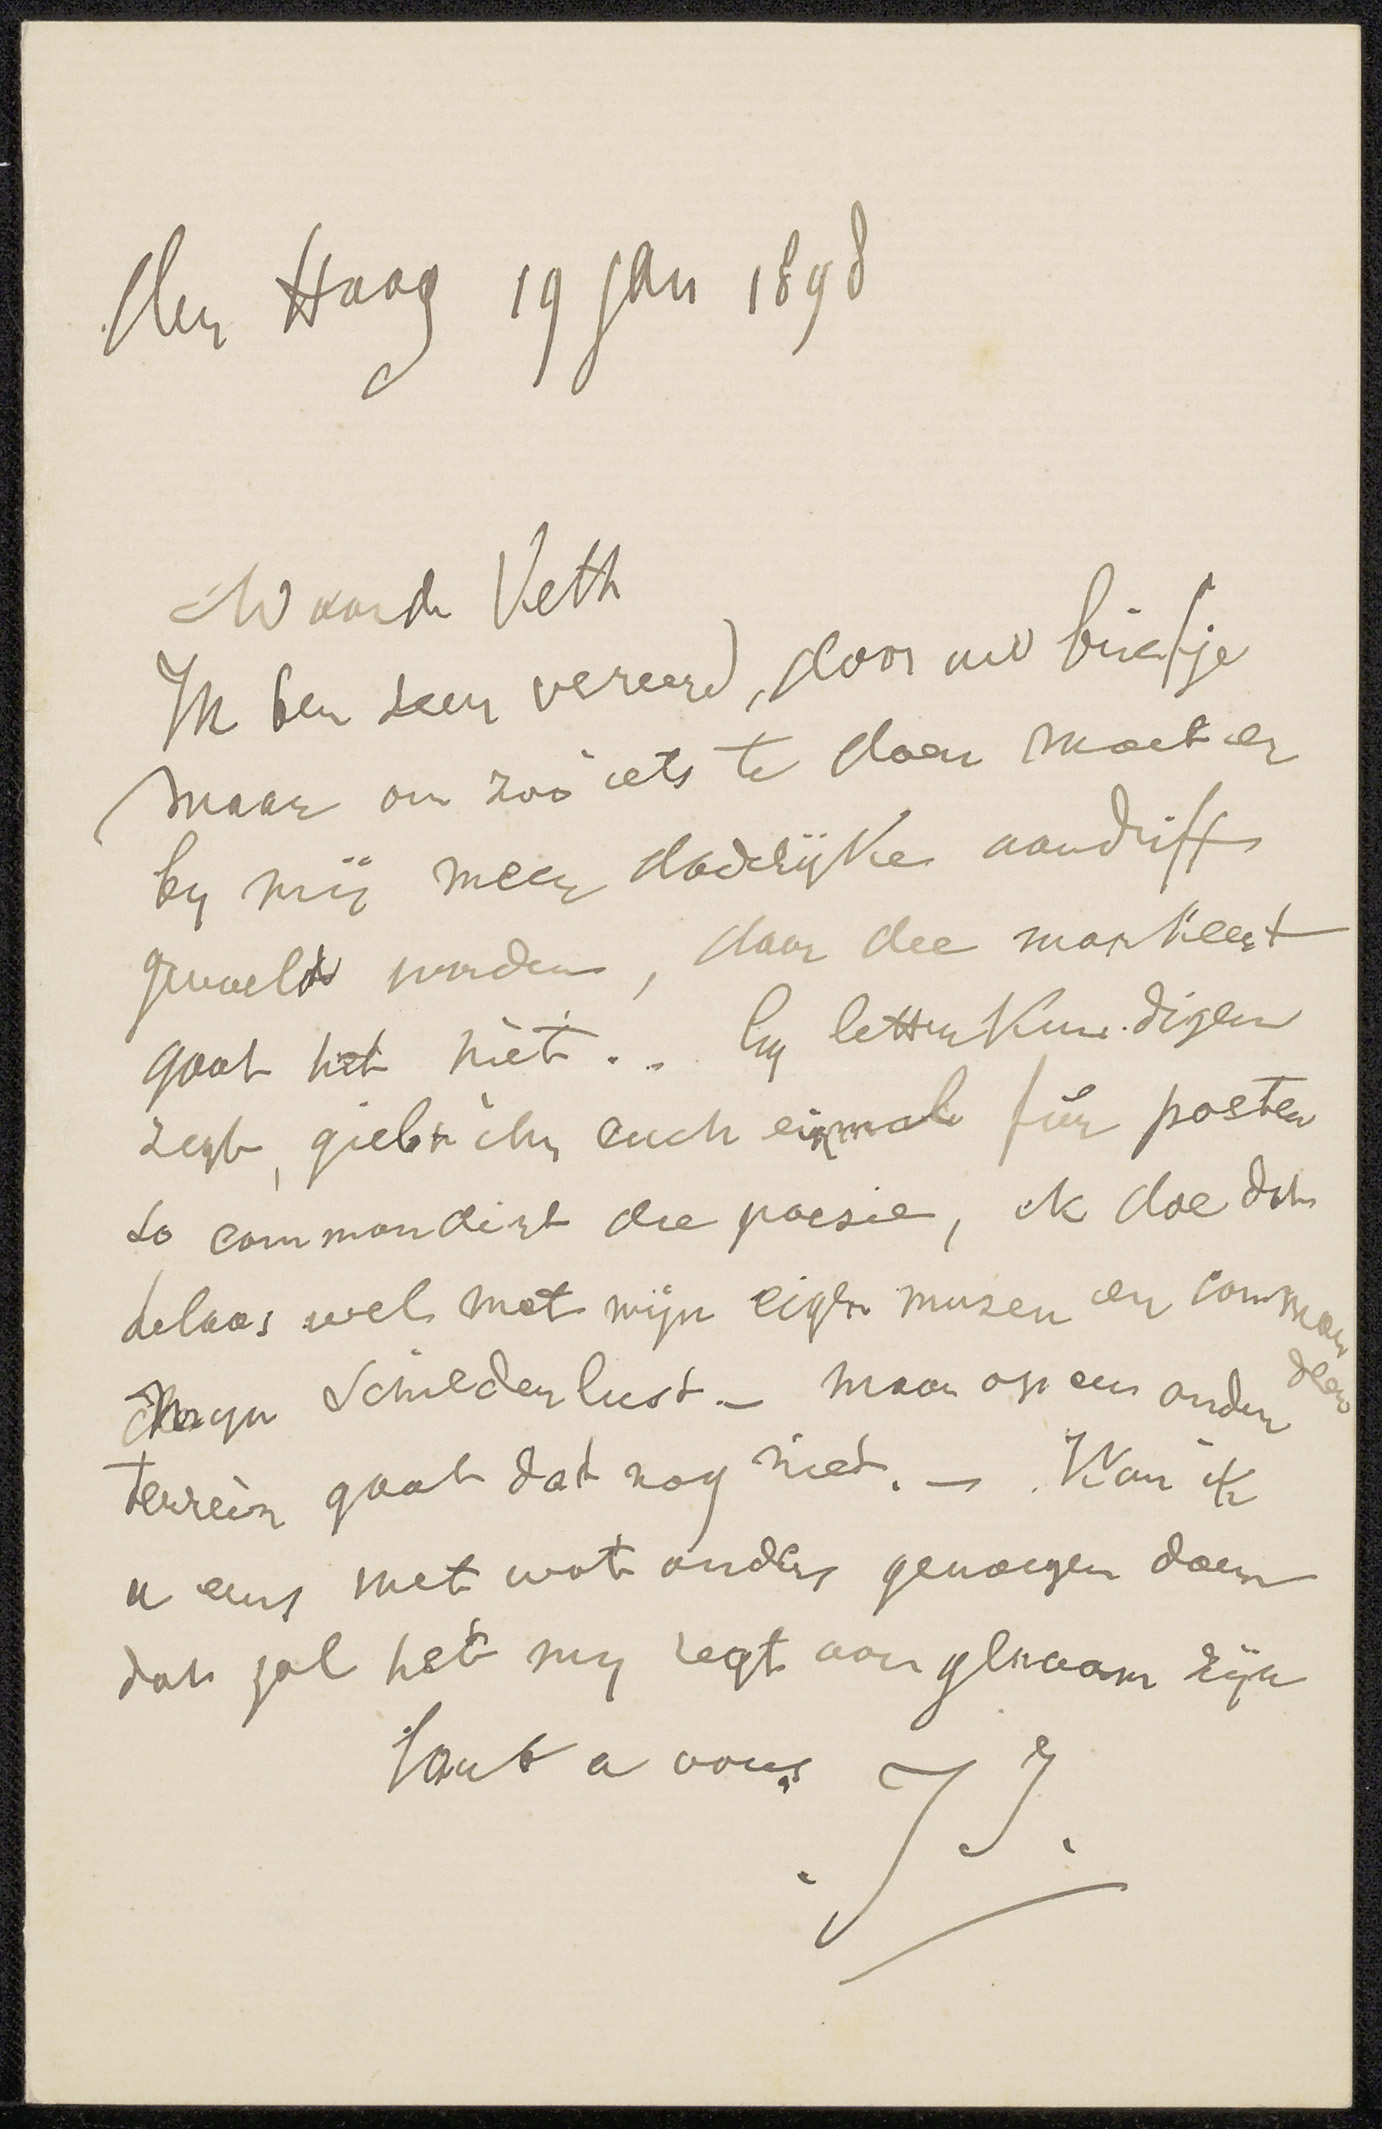 den Haag 19 jan 1898
Waarde Veth
Ik ben zeer vereerd, door uw briefje
maar om zoo iets te doen moet er
by mij meer dadelyke aandrift
gevoeld worden, daar die mankeert
gaat het niet.. by letterkundigen
zegt, giebt ihr euch einmal für poeten
so commandirt die poesie, ik doe dat
helaas wel met mijn eigen muzen en comman
deer
mijn schilderlust – maar op een ander
terrein gaat dat nog niet. – Kan ik
u eens met wat anders genoegen doen
dan zal het my regt aangenaam zijn
tout a vous J I.